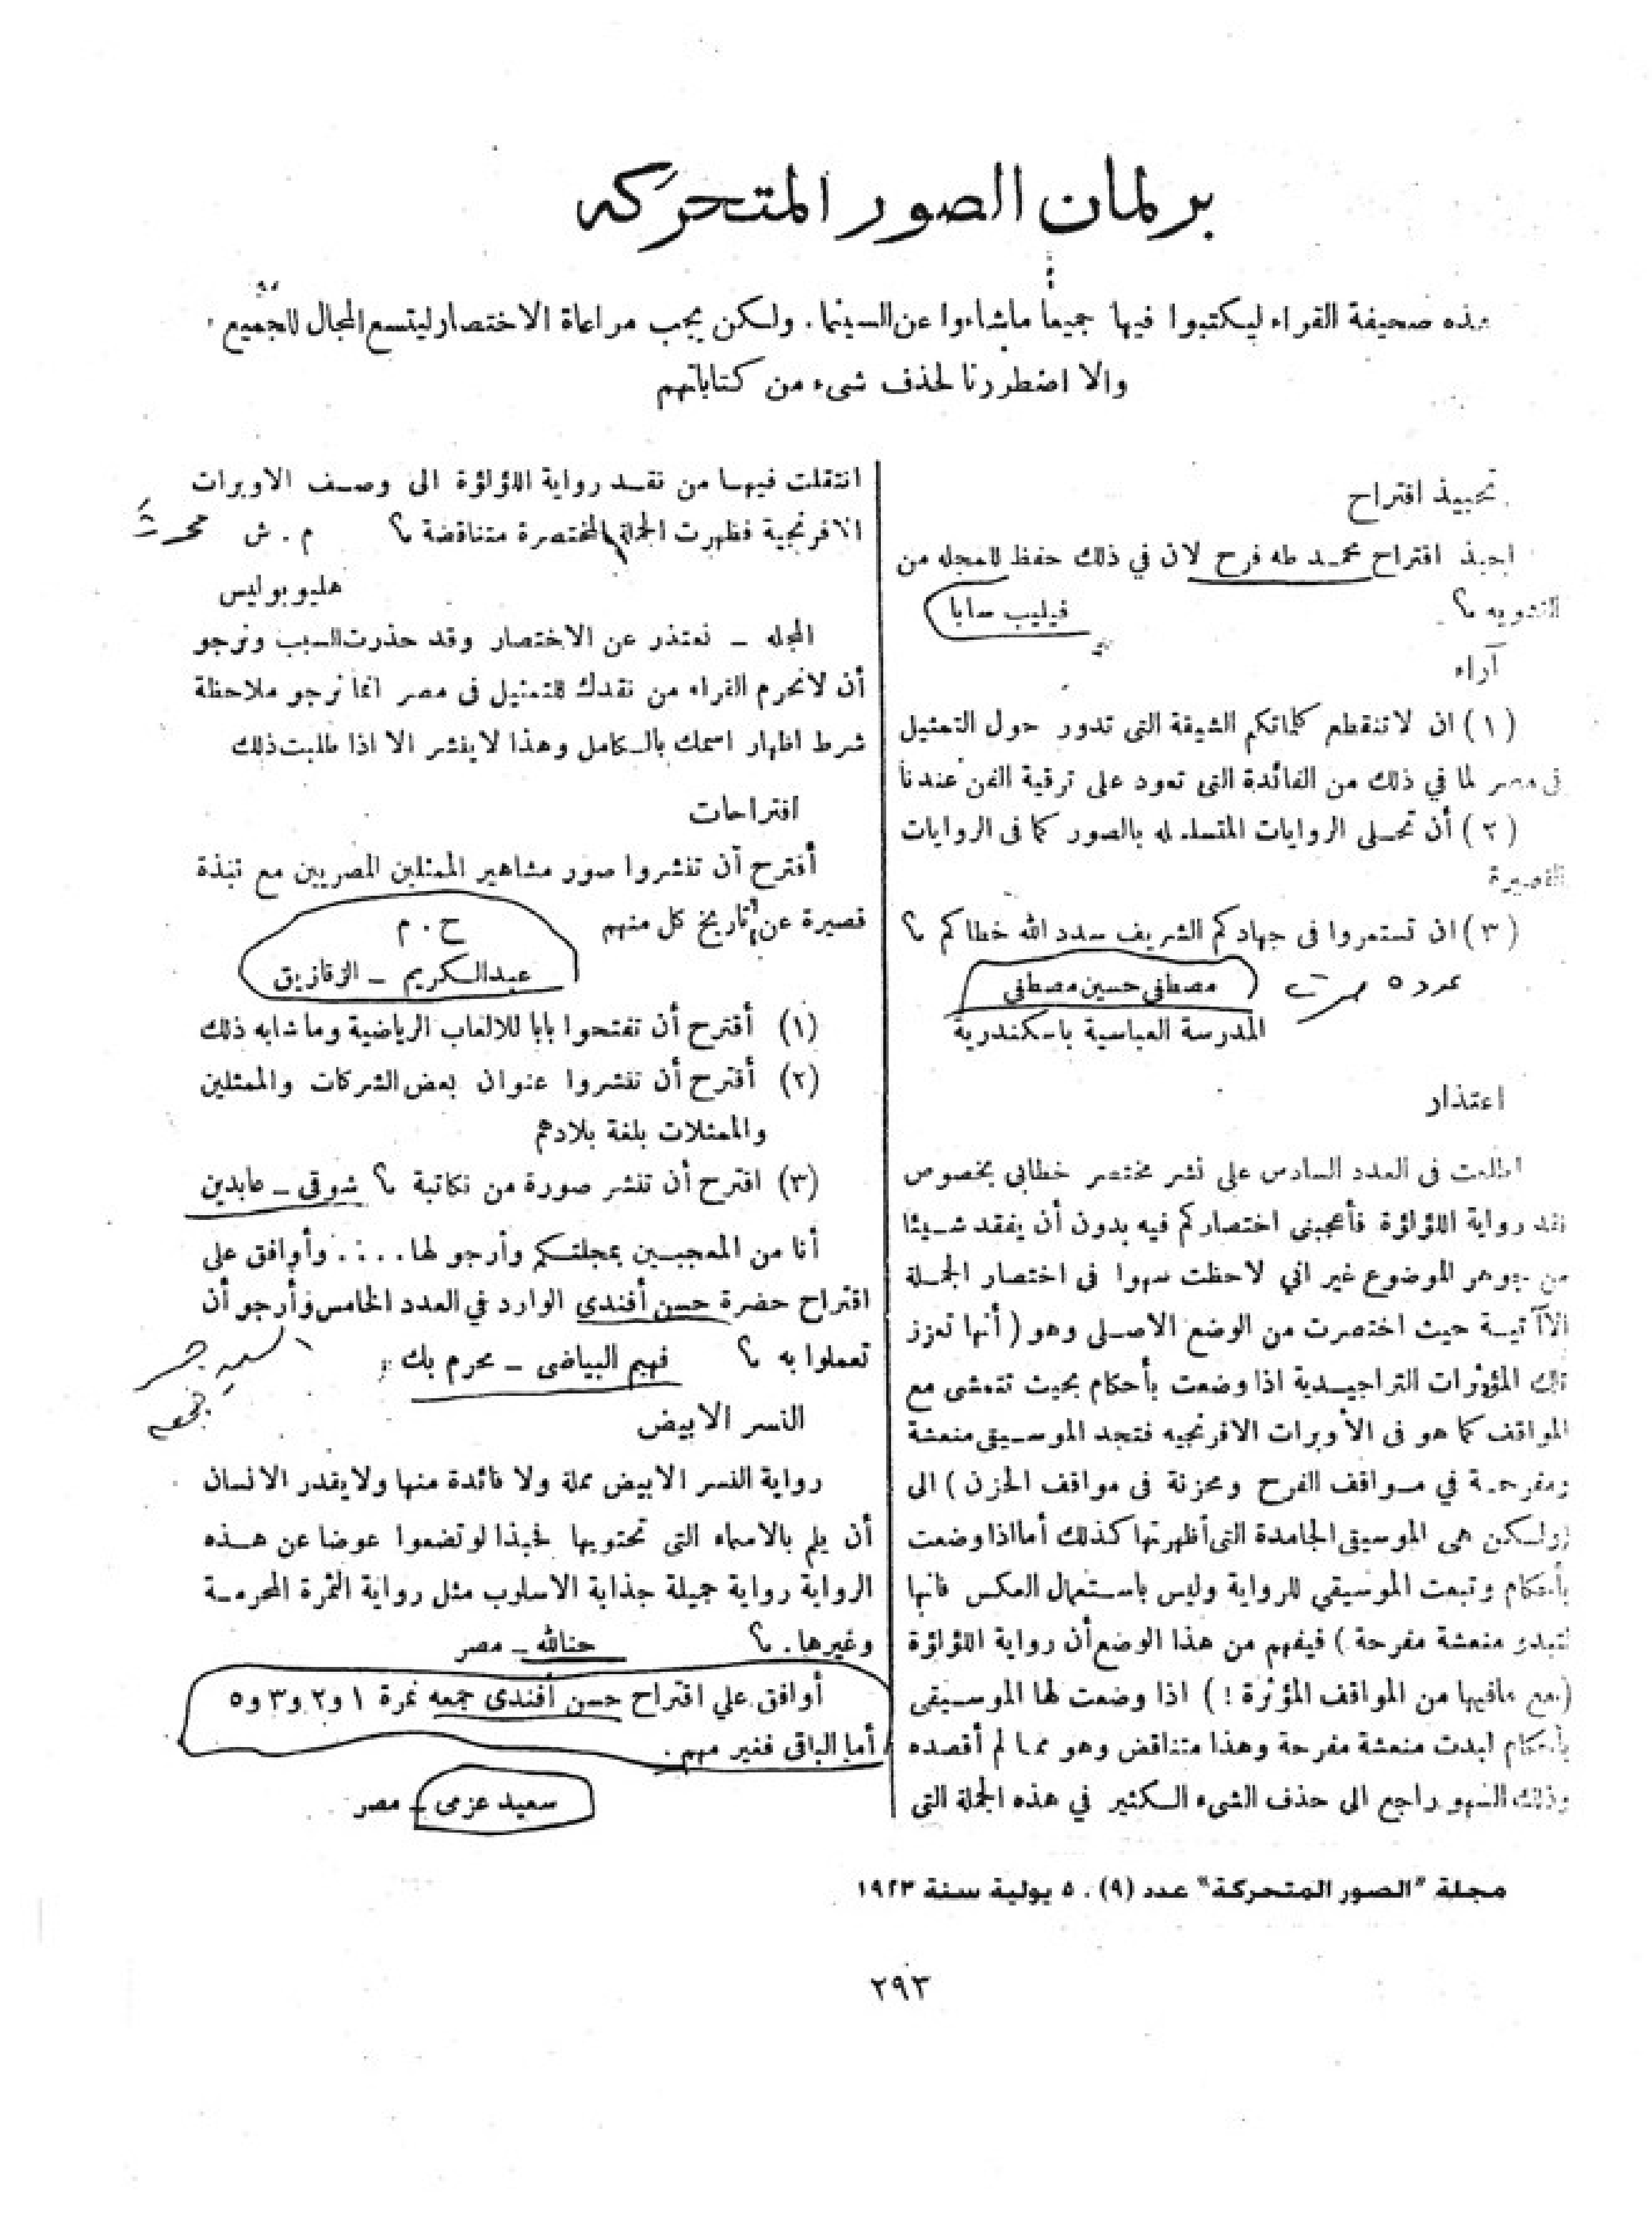 برلمان الصور المتحركه
هذه صحيفة القراء ليكتبوا فيها جميعاً ماشاءوا عن السينما . ولكن يجب مراعاة الاختصار ليتسع المجال للجميع
والا اضطررنا لحذف شىء من كتاباتهم
تحبيذ اقتراح
احبذ اقتراح محمد طه فرح لان في ذلك حفظ للمجله من
التشويه ؟ فيليب سابا
آراء
(١) ان لا تنقطع كلماتكم الشيقة التى تدور حول التمثيل
فى مصر لما في ذلك من الفائدة التى تعود على ترقية الفن عندنا
(٢) أن تحلى الروايات المتسلسله بالصور كما فى الروايات
القصيرة
(٣) ان تستمروا فى جهادكم الشريف سدد الله خطاكم ؟
مصطفى حسين مصطفى
المدرسة العباسية باسكندرية
اعتذار
اطلعت فى العدد السادس على نشر مختصر خطابى بخصوص
نقد رواية اللؤلؤة فأعجبنى اختصاركم فيه بدون أن يفقد شيئا
من جوهر الموضوع غير اني لاحظت سهوا فى اختصار الجملة
الآتية حيث اختصرت من الوضع الاصلى وهو ( أنها تعزز
تلك المؤثرات التراجيدية اذا وضعت بأحكام بحيث تتمشى مع
المواقف كما هو فى الأوبرات الافرنجيه فتجد الموسيقى منعشة
ومفرحة في مواقف الفرح ومحزنة فى مواقف الحزن ) الى
(ولكن هى الموسيقى الجامدة التى أظهرتها كذلك أما اذا وضعت
بأحكام وتبعت الموسيقي للرواية وليس باستعمال العكس فانها
لتبدو منعشة مفرحة ) فيفهم من هذا الوضع أن رواية اللؤلؤة
(مع مافيها من المواقف المؤثرة ! ) اذا وضعت لها الموسيقى
بأحكام لبدت منعشة مفرحة وهذا متناقض وهو مما لم أقصده
وذلك السهو راجع الى حذف الشىء الكثير في هذه الجملة التى
انتقلت فيها من نقد رواية اللؤلؤة الى وصف الاوبرات
الافرنجية فظهرت الجملة المختصرة متناقضة ؟ م . ش
هليوبوليس
المجله – نعتذر عن الاختصار وقد حذرت السبب ونرجو
أن لا نحرم القراء من نقدك للتمثيل فى مصر انما نرجو ملاحظة
شرط اظهار اسمك بالكامل وهذا لاينشر الا اذا طلبت ذلك
افتراحات
أفترح أن تنشروا صور مشاهير الممثلين المصريين مع نبذة
قصيرة عن تاريخ كل منهم ح . م
عبد الكريم – الزقازيق
(١) أقترح أن تفتحوا بابا للالعاب الرياضية وما شابه ذلك
(٢) أقترح أن تنشروا عنوان بعض الشركات والممثلين
والممثلات بلغة بلادهم
(٣) اقترح أن تنشر صورة من نكاتبة ؟ شوقى – عابدين
أنا من المعجبين بمجلتكم وأرجو لها . . . . . وأوافق على
اقتراح حضرة حسن أفندى الوارد في العدد الخامس وأرجو أن
تعملوا به ؟ فهيم البياضى – محرم بك
النسر الابيض
رواية النسر الابيض مملة ولا فائدة منها ولا يقدر الانسان
أن يلم بالاسماء التى تحتويها فحبذا لو تضعوا عوضا عن هذه
الرواية رواية جميلة جذابة الاسلوب مثل رواية الثمرة المحرمة
وغيرها . ؟ حنا لله – مصر
أوافق علي اقتراح حسن أفندى جمعه نمرة ١ و٢ و٣ و٥
أما الباقى فغير مهم .
سعيد عزمى – مصر
مجلة "الصور المتحركة" عدد (٩) . ٥ يولية سنة ١٩٢٣
٢٩٣